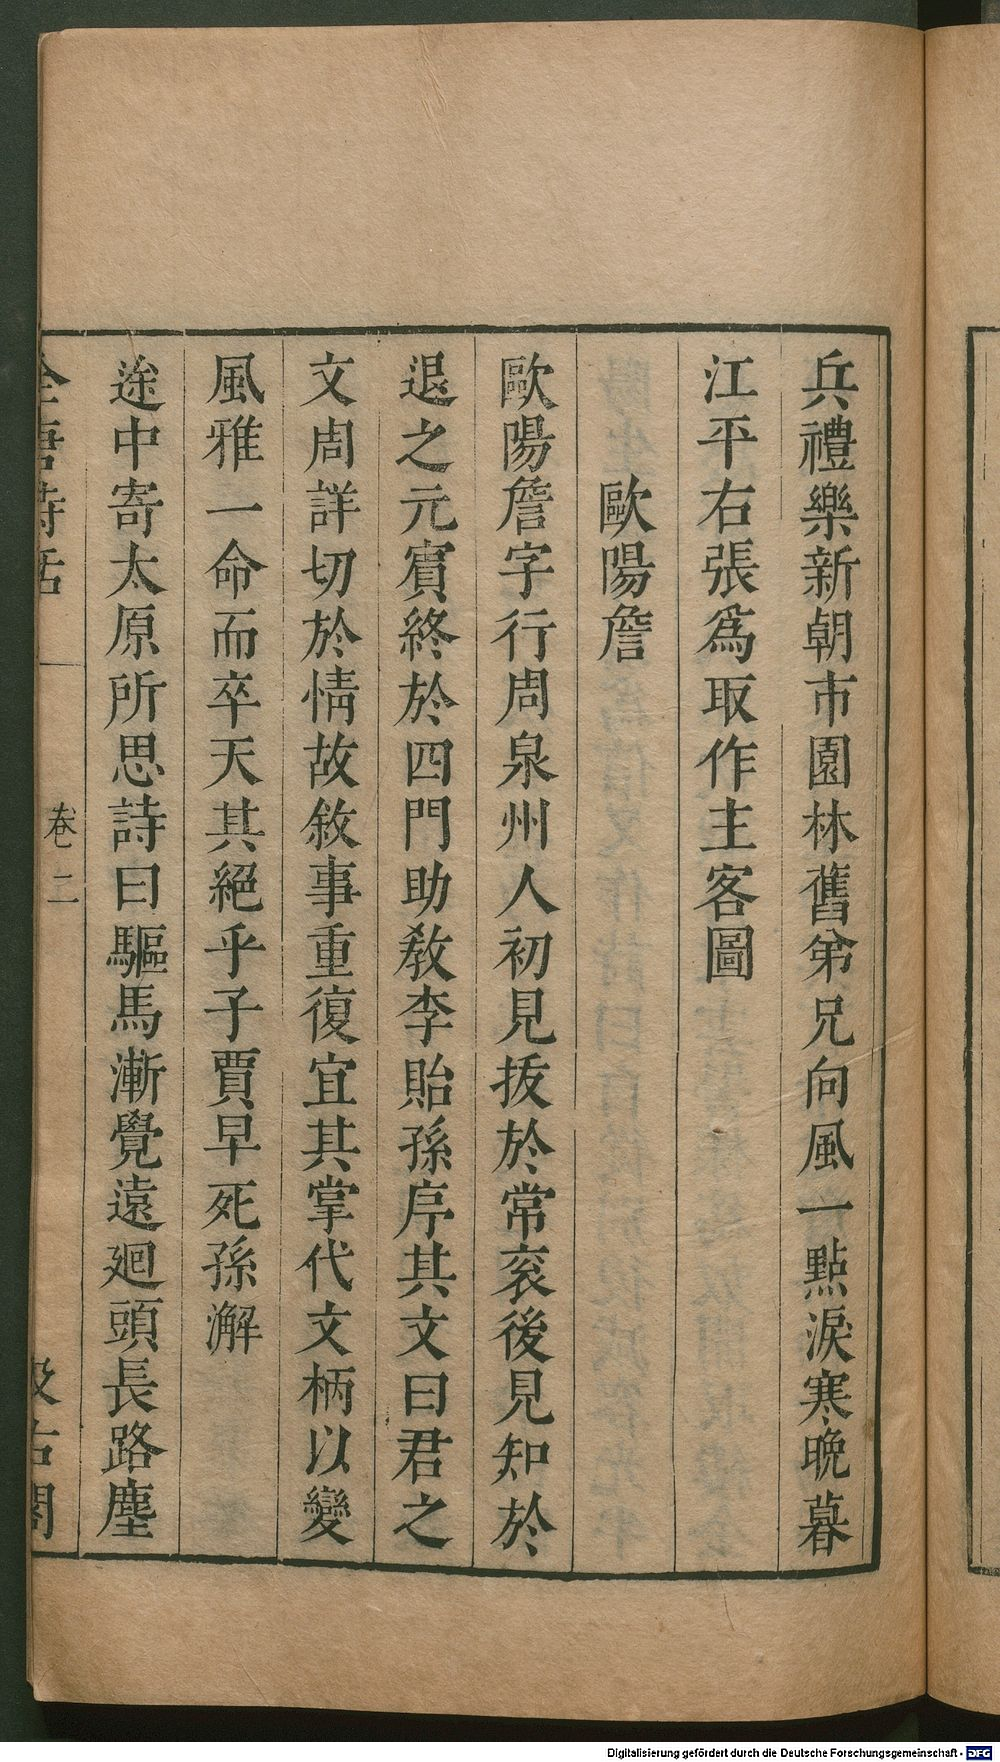 兵禮樂新朝市園林舊弟兄向風一點淚寒晚暮
江平右張爲取作主客圖
歐陽詹
歐陽詹字行周泉州人初見拔於常衮後見知於
退之元賔終於四門助敎李貽孫序其文曰君之
文周詳切於情故敘事重復宜其掌代文柄以變
風雅一命而卒天其絕乎子賈早死孫澥
途中寄太原所思詩曰驅馬漸覺遠廻頭長路塵
全唐詩話
卷二
汲古閣
Digitalisierung gefördert durch die Deutsche Forschungsgemeinschaft - DFG